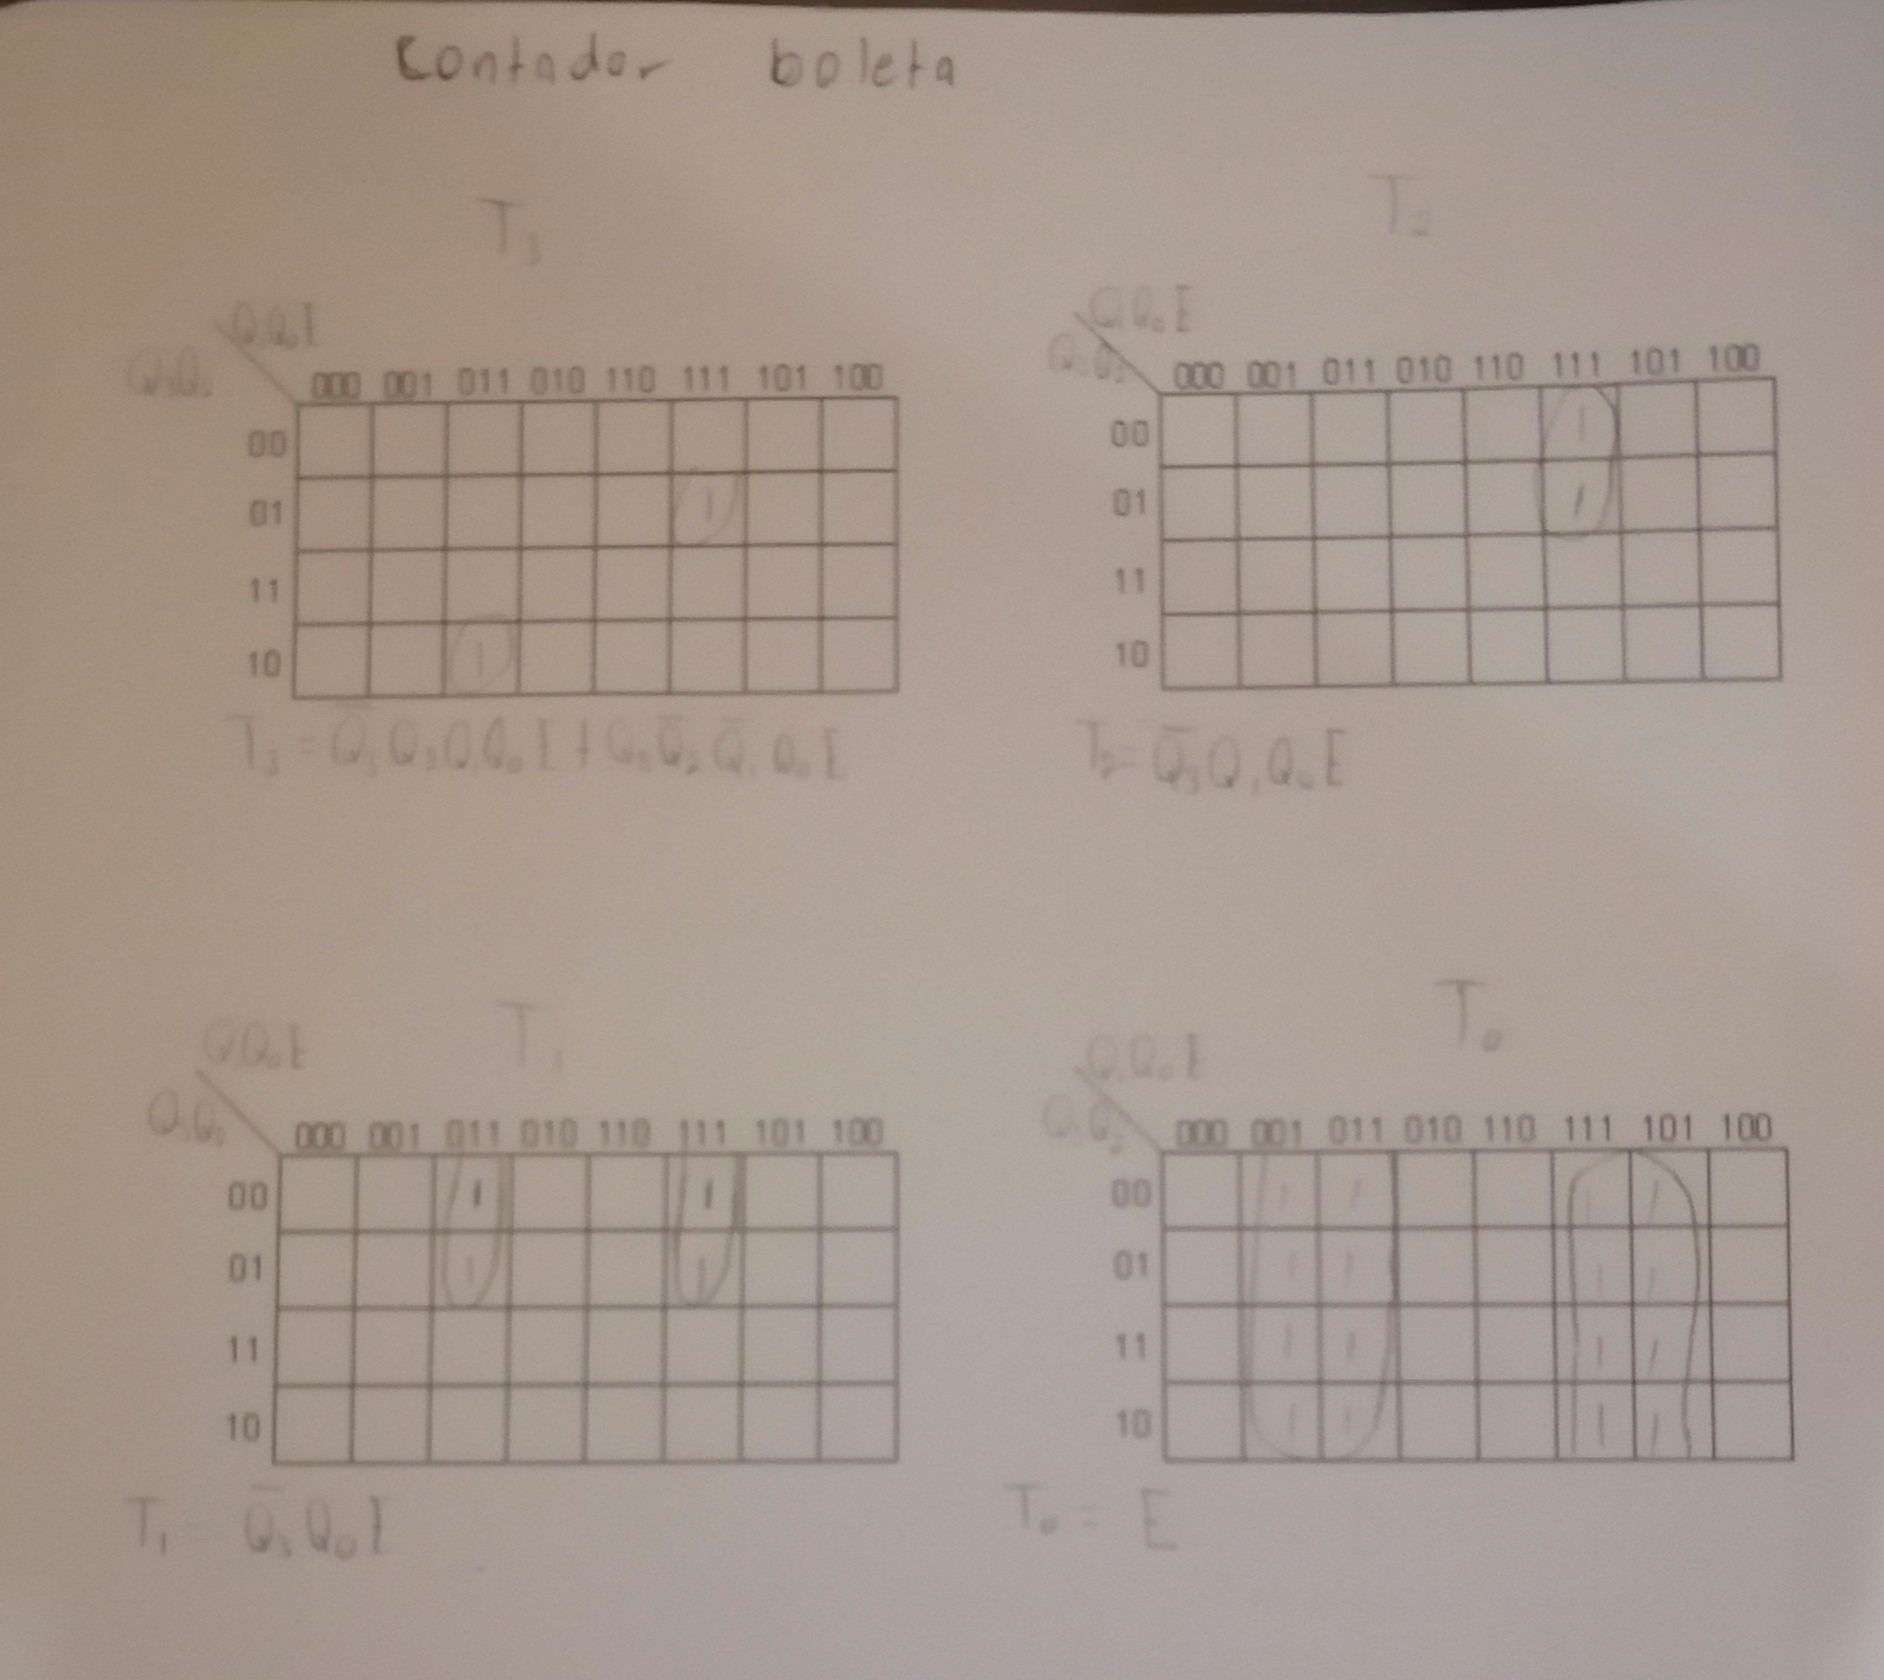 Contador boleta
T3
Q1Q0E
Q3Q2
000 001 011 010 110 111 101 100
00
01 1
11
10 1
T3 = Q̅3Q2Q1Q0E + Q3Q̅2Q̅1Q0E
T2
Q1Q0E
Q3Q2
000 001 011 010 110 111 101 100
00 1
01 1
11
10
T2 = Q̅3Q1Q0E
T1
Q1Q0E
Q3Q2
000 001 011 010 110 111 101 100
00 1 1
01 1 1
11
10
T1 = Q̅3Q0E
T0
Q1Q0E
Q3Q2
000 001 011 010 110 111 101 100
00 1 1 1 1
01 1 1 1 1
11 1 1 1 1
10 1 1 1 1
T0 = E